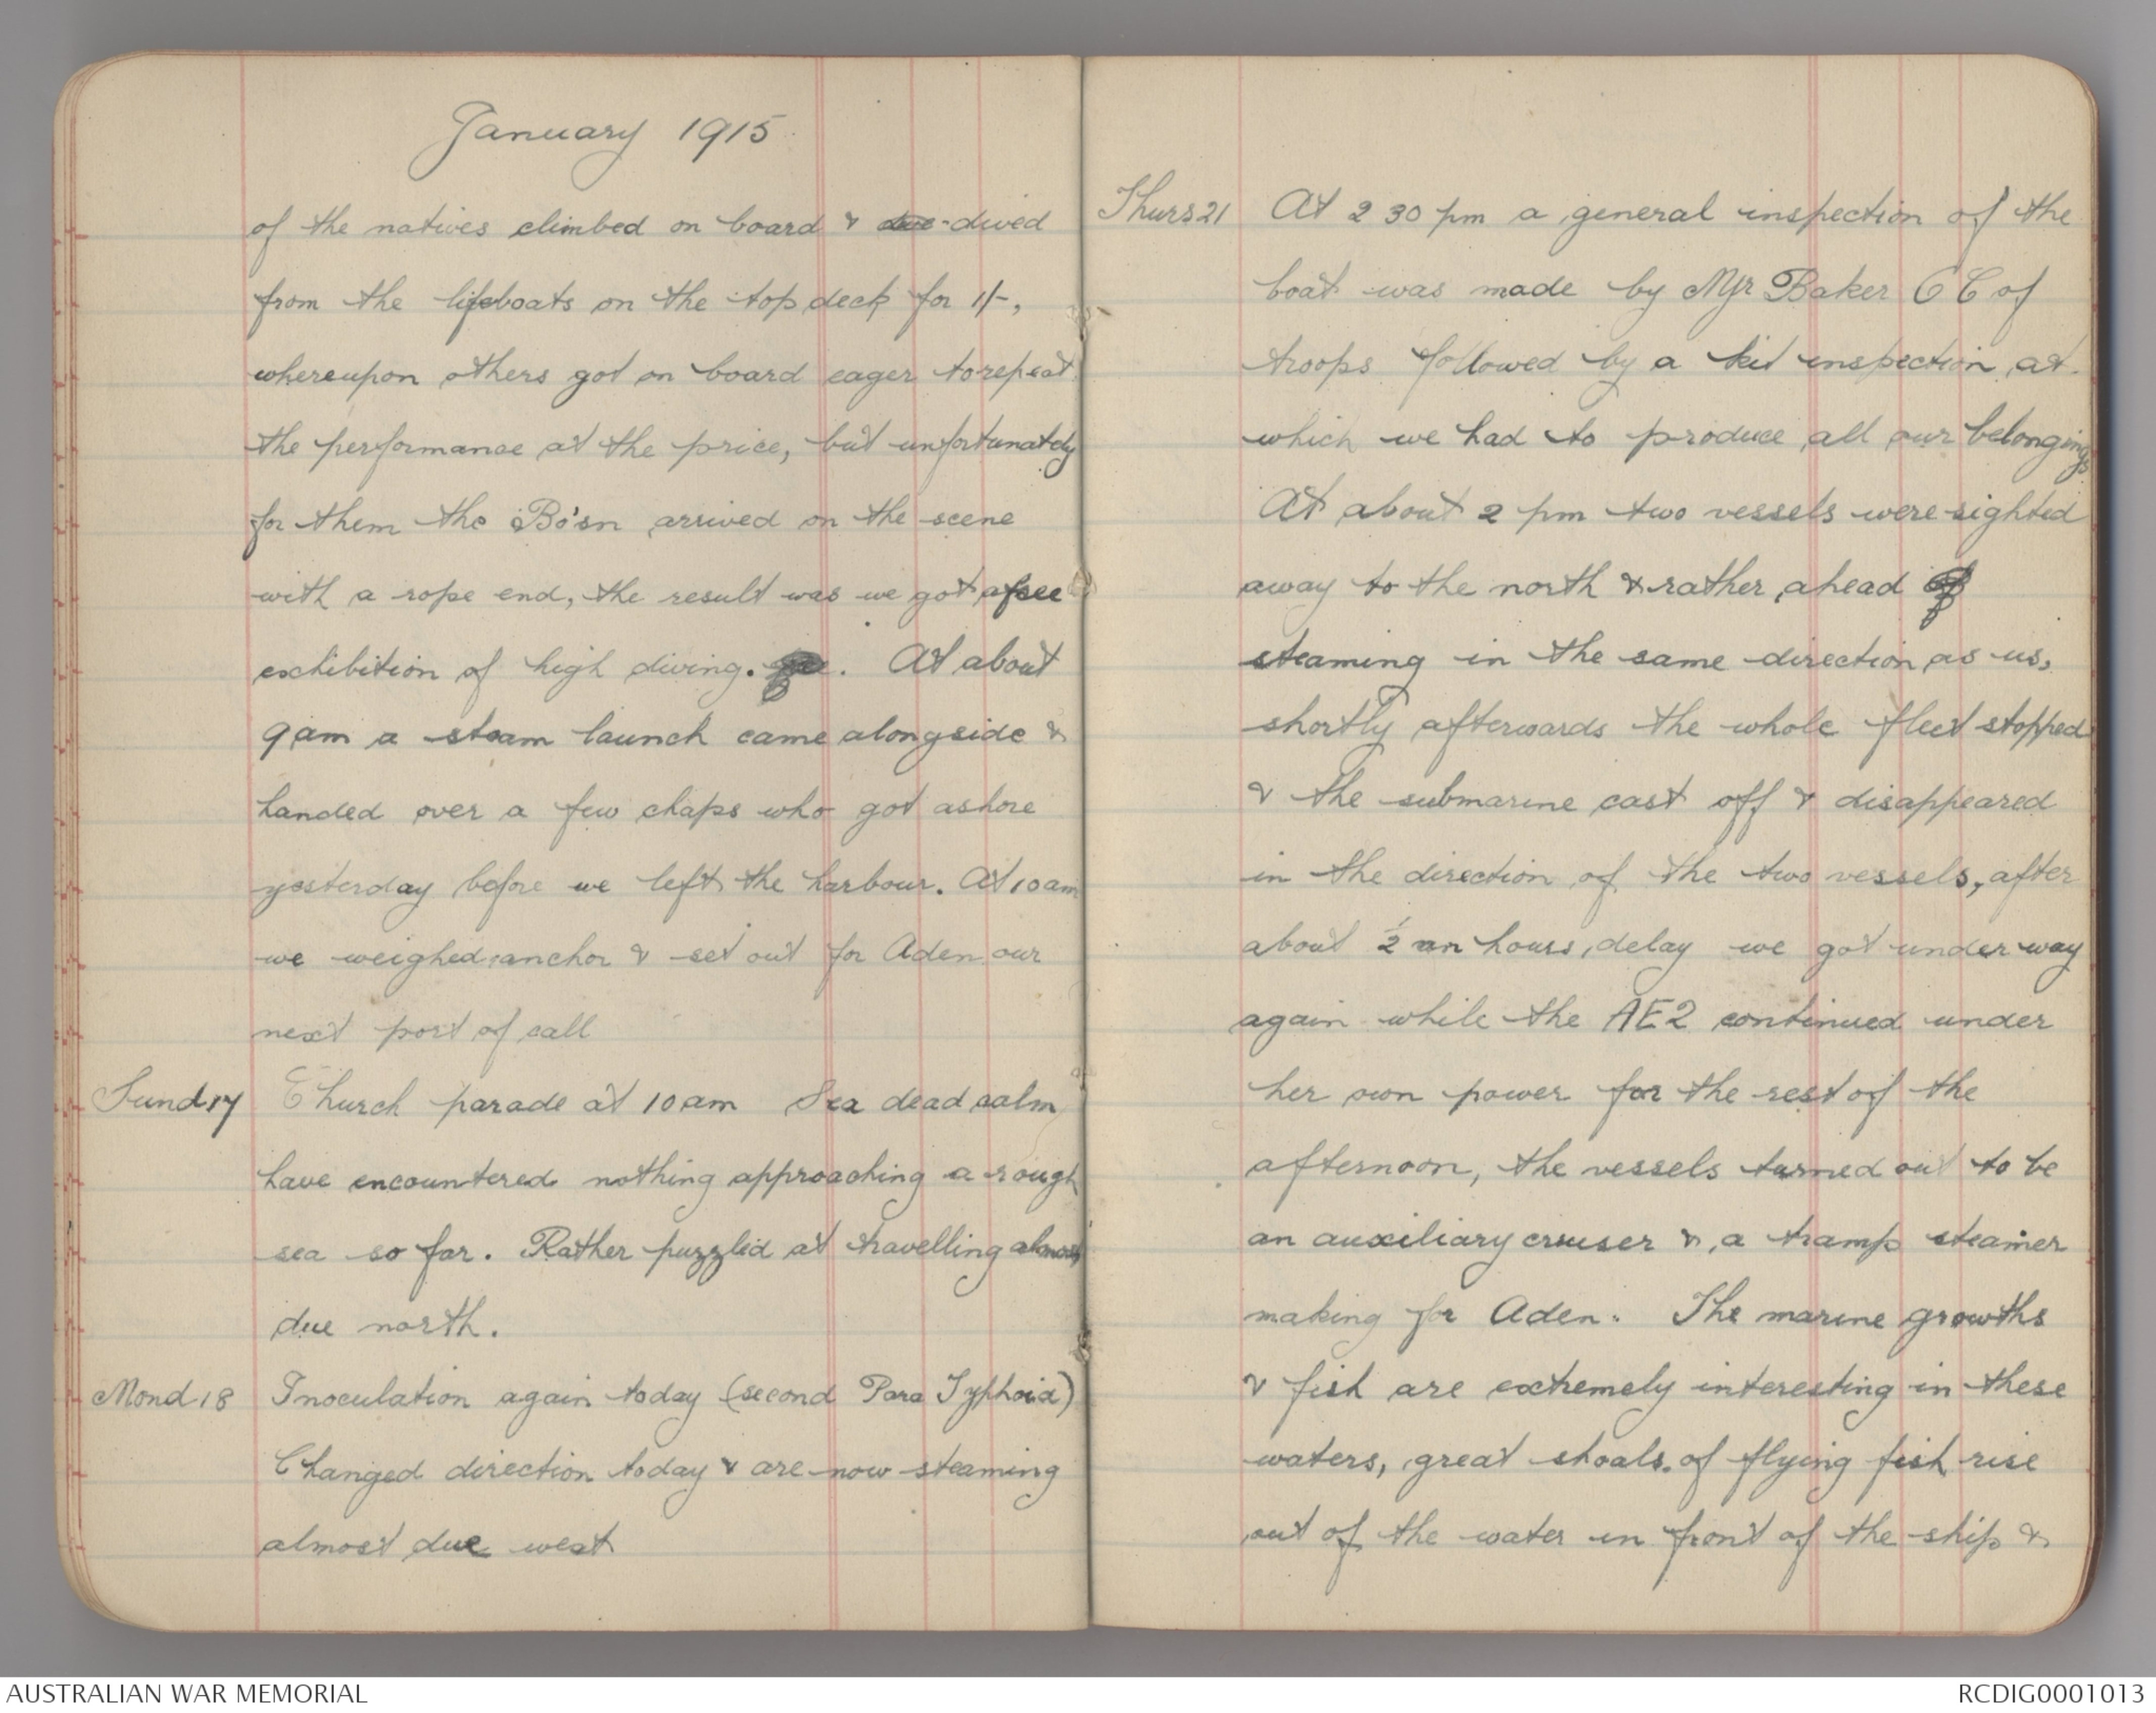 January 1915
of the natives climbed on board & dived
from the lifeboats on the top deck for 1/-,
whereupon others got on board eager to repeat
the performance at the price, but unfortunately
for them the Bo'sn arrived on the scene
with a rope end, the result was we got a free
exhibition of high diving. . At about
9 am a steam launch came alongside &
handed over a few chaps who got ashore
yesterday before we left the harbour. At 10 am
we weighed anchor & set out for Aden our
next port of call
Sund 17 Church parade at 10 am Sea dead calm
have encountered nothing approaching a rough
sea so far. Rather puzzled at travelling almost
due north.
Mond 18 Inoculation again today (second Para Typhoid)
Changed direction today & are now steaming
almost due west
Thurs 21 At 2 30 pm a general inspection of the
boat was made by Mjr Baker O C of
troops followed by a kit inspection at
which we had to produce all our belongings
At about 2 pm two vessels were sighted
away to the north & rather ahead
steaming in the same direction as us,
shortly afterwards the whole fleet stopped
& the submarine cast off & disappeared
in the direction of the two vessels, after
about ½ an hours delay we got under way
again while the AE2 continued under
her own power for the rest of the
afternoon, the vessels turned out to be
an auxiliary cruiser & a tramp steamer
making for Aden. The marine growths
& fish are extremely interesting in these
waters, great shoals of flying fish rise
out of the water in front of the ship &
AUSTRALIAN WAR MEMORIAL
RCDIG0001013